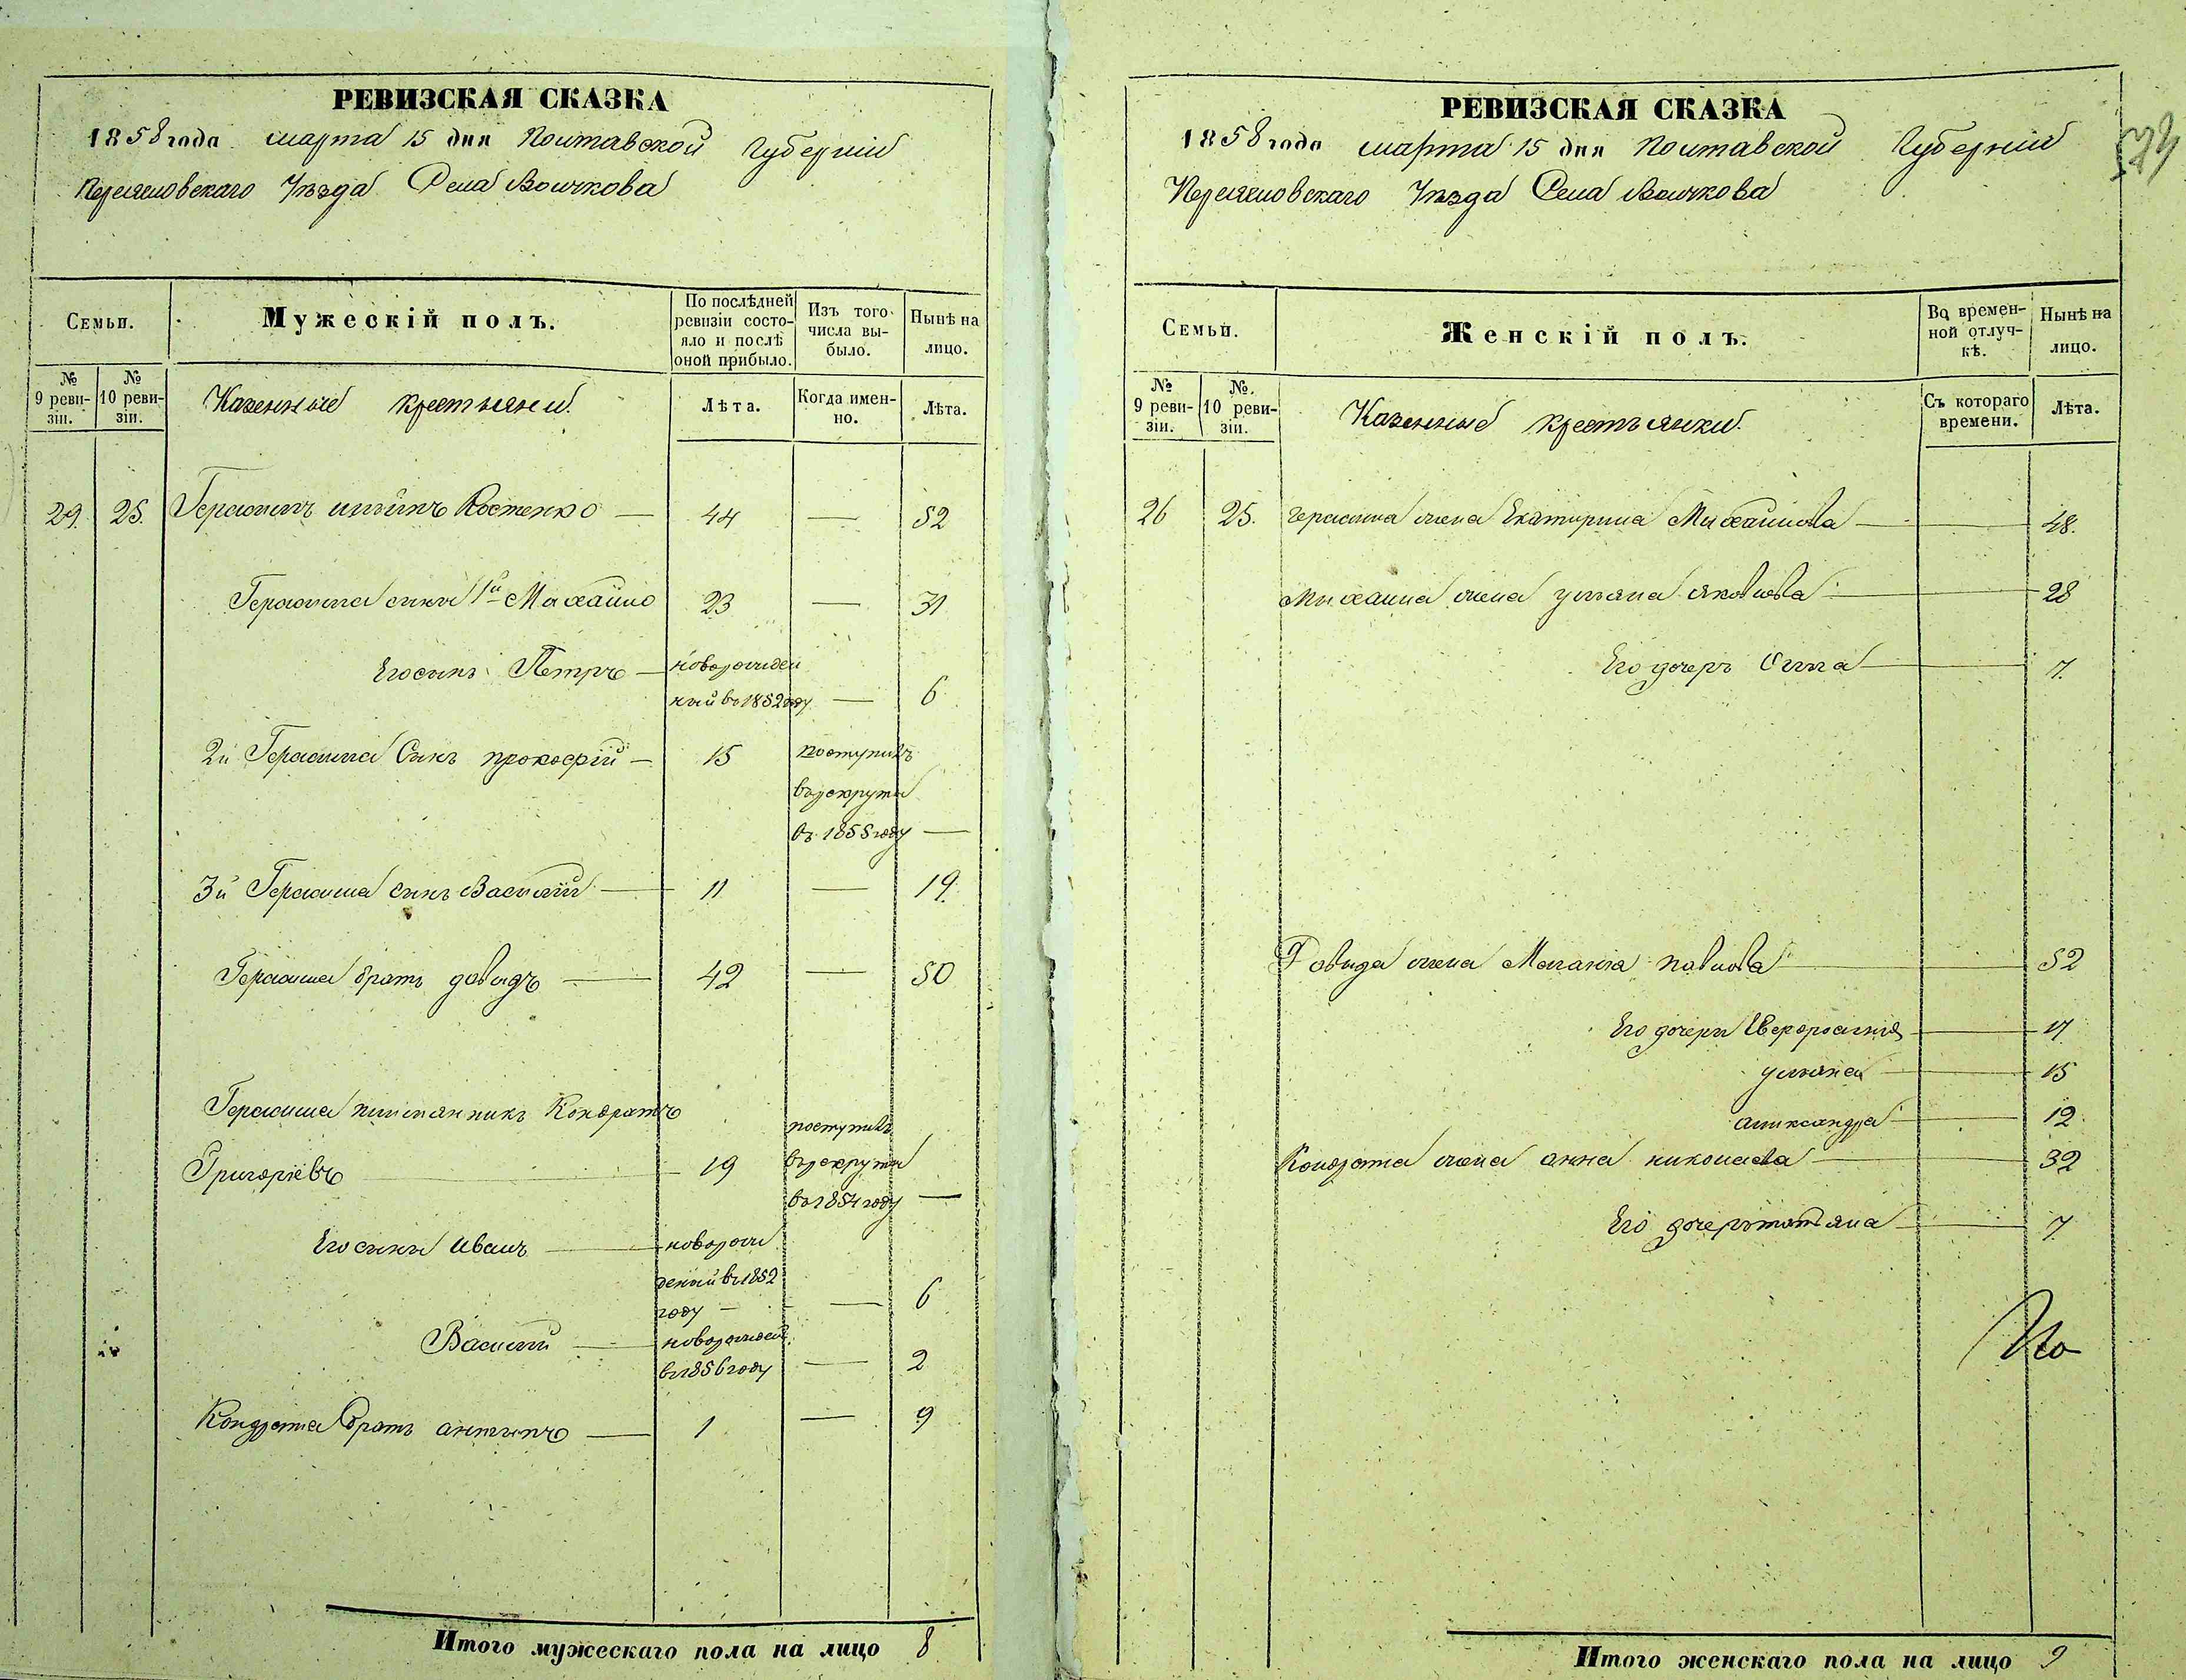 РЕВИЗСКАЯ СКАЗКА
1858 года марта 15 дня Полтавской Губернiи
Переяслов­скаго Уѣзда Села Волчкова
Семьи.
Мужескiй полъ.
По послѣдней ревизiи состо-
яло и послѣ
оной прибыло.
Изъ того
числа вы-
было.
Нынѣ на
лицо.
№
9 реви-
зiи.
№
10 реви-
зiи.
Казенные крестьяни.
Лѣта.
Когда имен-
но.
Лѣта.
29. 25. Герасимъ Костенко — 44 — 52
Герасима сины 1й Михайло 23 — 31
Его сынъ Петръ — новорожден
ный въ 1852 году — 6
2й Герасима Сынъ прокофiй — 15 поступилъ
въ рекруты
въ 1855 году —
3й Герасима сынъ Василiй — 11 — 19.
Герасима братъ давидъ — 42 — 50
Герасима племянникъ Кондратъ
Григорiевъ — 19 поступилъ
въ рекруты
въ 1854 году —
Его сыны Иванъ — новорож
деный въ 1852
году — — 6
Василiй — новорожден
въ 1856 году — 2
Кондрата братъ антипъ — 1 — 9
Итого мужескаго пола на лицо 8
РЕВИЗСКАЯ СКАЗКА
1858 года марта 15 дня Полтавской Губернiи
Переясловскаго Уѣзда Села Волчкова
Семьи.
Женскiй полъ.
Во времен-
ной отлуч-
кѣ.
Нынѣ на
лицо.
№
9 реви-
зiи.
№.
10 реви-
зiи.
Казенные крестьянки.
Съ котораго
времени.
Лѣта.
26 25. герасима жена Екатирина Михайлова — 48.
Михаила жена ульяна яковлева — 28
Его дочеръ Анна — 7.
Довида жена Малания павлова — 52
Его дочери Евфросиния — 17
ульяна — 15
аликсандра — 12
Кондрата жена анна николаева — 32
Его дочеръ татьяна — 7
Но
Итого женскаго пола на лицо 9